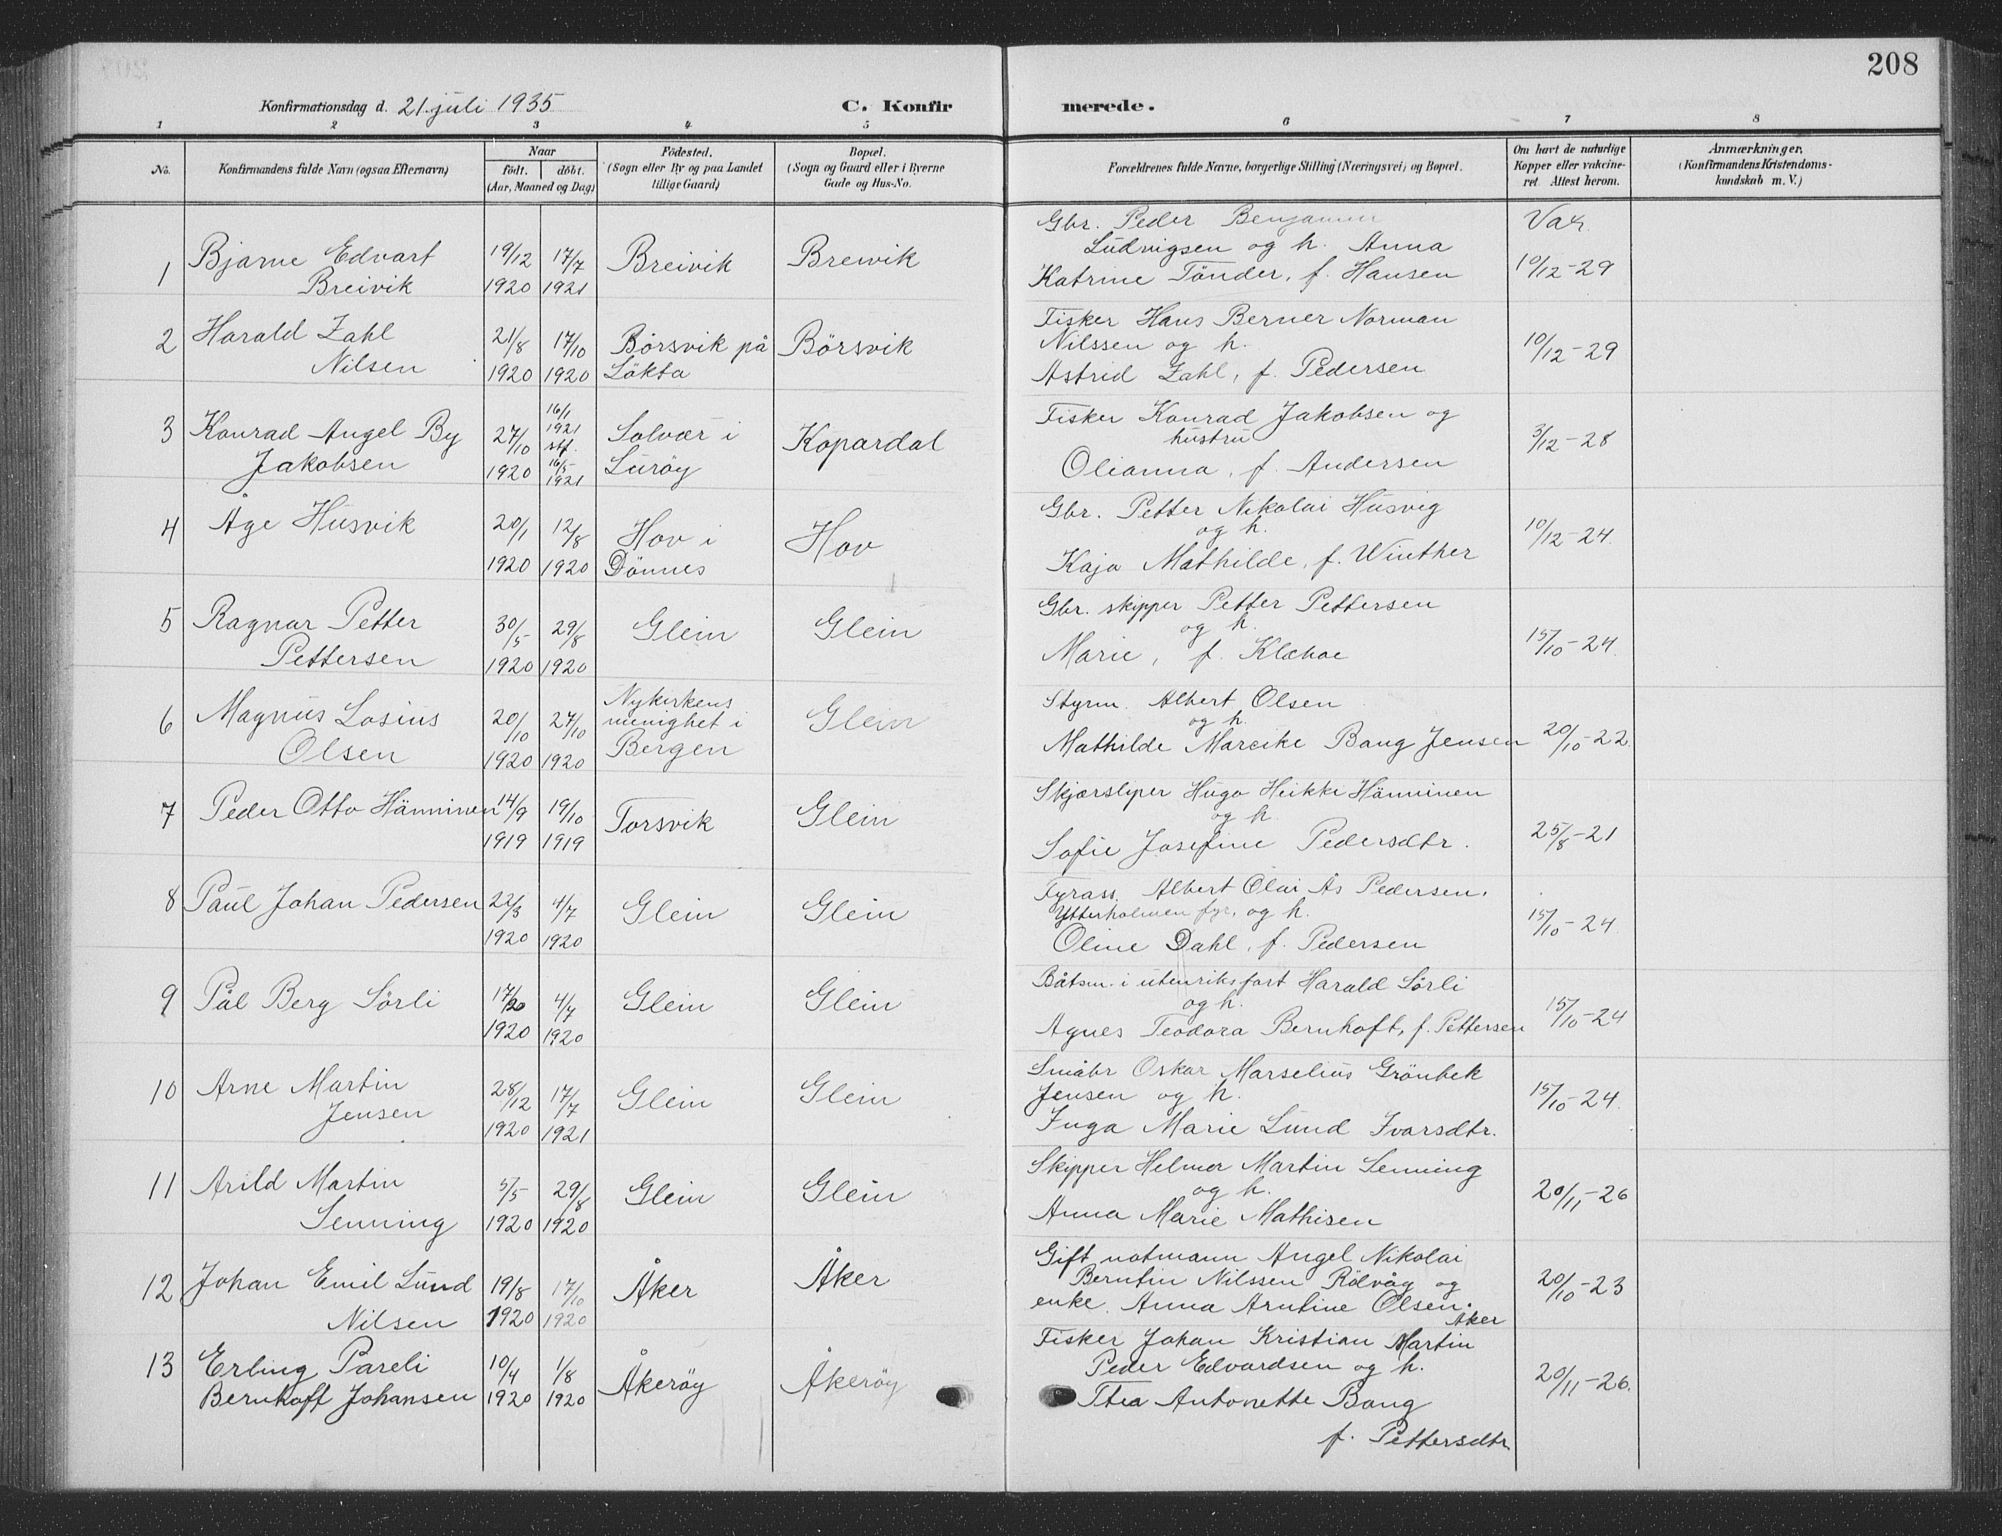 208
Konfirmationsdag d. 21. juli 1935 C. Konfirmerede.
1 2 3 4 5 6 7 8
No. Konfirmandens fulde Navn (ogsaa Efternavn) Naar født. døbt. (Aar, Maaned og Dag) Fødested. (Sogn eller By og paa Landet tillige Gaard) Bopæl. (Sogn og Gaard eller i Byerne Gade og Hus-No. Forældrenes fulde Navne, borgerlige Stilling (Næringsvei) og Bopæl. Om havt de naturlige Kopper eller vakcineret. Attest herom. Anmærkninger. (Konfirmandens Kristendomskundskab m. V.)
1 Bjarne Edvart Breivik 19/12 1920 17/7 1921 Breivik Breivik
Gbr. Peder Benjamin
Ludvigsen og h. Anna
Katrine Tønder, f. Hansen
Vax. 10/12-29
2 Harald Zahl Nilsen 21/8 1920 17/10 1920 Börsvik på Lökta Börsvik
Fisker Hans Berner Norman
Nilssen og h.
Astrid Zahl, f. Pedersen
10/12-29
3 Konrad Angel By Jakobsen 27/10 1920 16/1 1921 stf. 16/5 1921 Solvær i Luröy Kopardal
Fisker Konrad Jakobsen og
hustru
Olianna, f. Andersen
3/12-28
4 Åge Husvik 20/1 1920 12/8 1920 Hov i Dönnes Hov
Gbr. Petter Nikolai Husvig
og h.
Kaja Mathilde, f. Winther
10/12-24.
5 Ragnar Petter Pettersen 30/5 1920 29/8 1920 Glein Glein
Gbr. skipper Petter Pettersen
og h.
Marie, f. Klæboe
15/10-24.
6 Magnus Losius Olsen 20/10 1920 27/10 1920 Nykirkens menighet i Bergen Glein
Styrm. Albert Olsen
og h.
Mathilde Mareike Bang Jensen
20/10-22.
7 Peder Otto Hänninen 14/9 1919 19/10 1919 Torsvik Glein
Skjærsliper Hugo Heikki Hänninen
og h.
Sofie Josefine Pedersdtr.
25/8-21
8 Paul Johan Pedersen 22/3 1920 4/7 1920 Glein Glein
Fyrass. Albert Olai As Pedersen.
Ytterholmen fyr, og h.
Oline Dahl, f. Pedersen
15/10-24.
9 Pål Berg Sörli 17/20 1920 4/7 1920 Glein Glein
Båtsm. i utenriksfart Harald Sörli
og h.
Agnes Teodora Bernhoft, f. Pettersen
15/10-24
10 Arne Martin Jensen 28/12 1920 17/7 1921 Glein Glein
Småbr Oskar Marselius Grönbek
Jensen og h.
Inga Marie Lund Ivarsdtr.
15/10-24.
11 Arild Martin Senning 5/5 1920 29/8 1920 Glein Glein
Skipper Helmer Martin Senning
og h.
Anna Marie Mathisen
20/11-26
12 Johan Emil Lund Nilsen 19/8 1920 17/10 1920 Åker Åker
Gift notmann Angel Nikolai
Berntin Nilssen Rölvåg og
enke. Anna Arntine Olsen.
Aker
20/10-23
13 Erling Pareli Bernhoff Johansen 10/4 1920 1/8 1920 Åkeröy Åkeröy
Fisker Johan Kristian Martin
Peder Edvardsen og h.
Thea Antonette Bang
f. Pettersdtr
20/11-26.